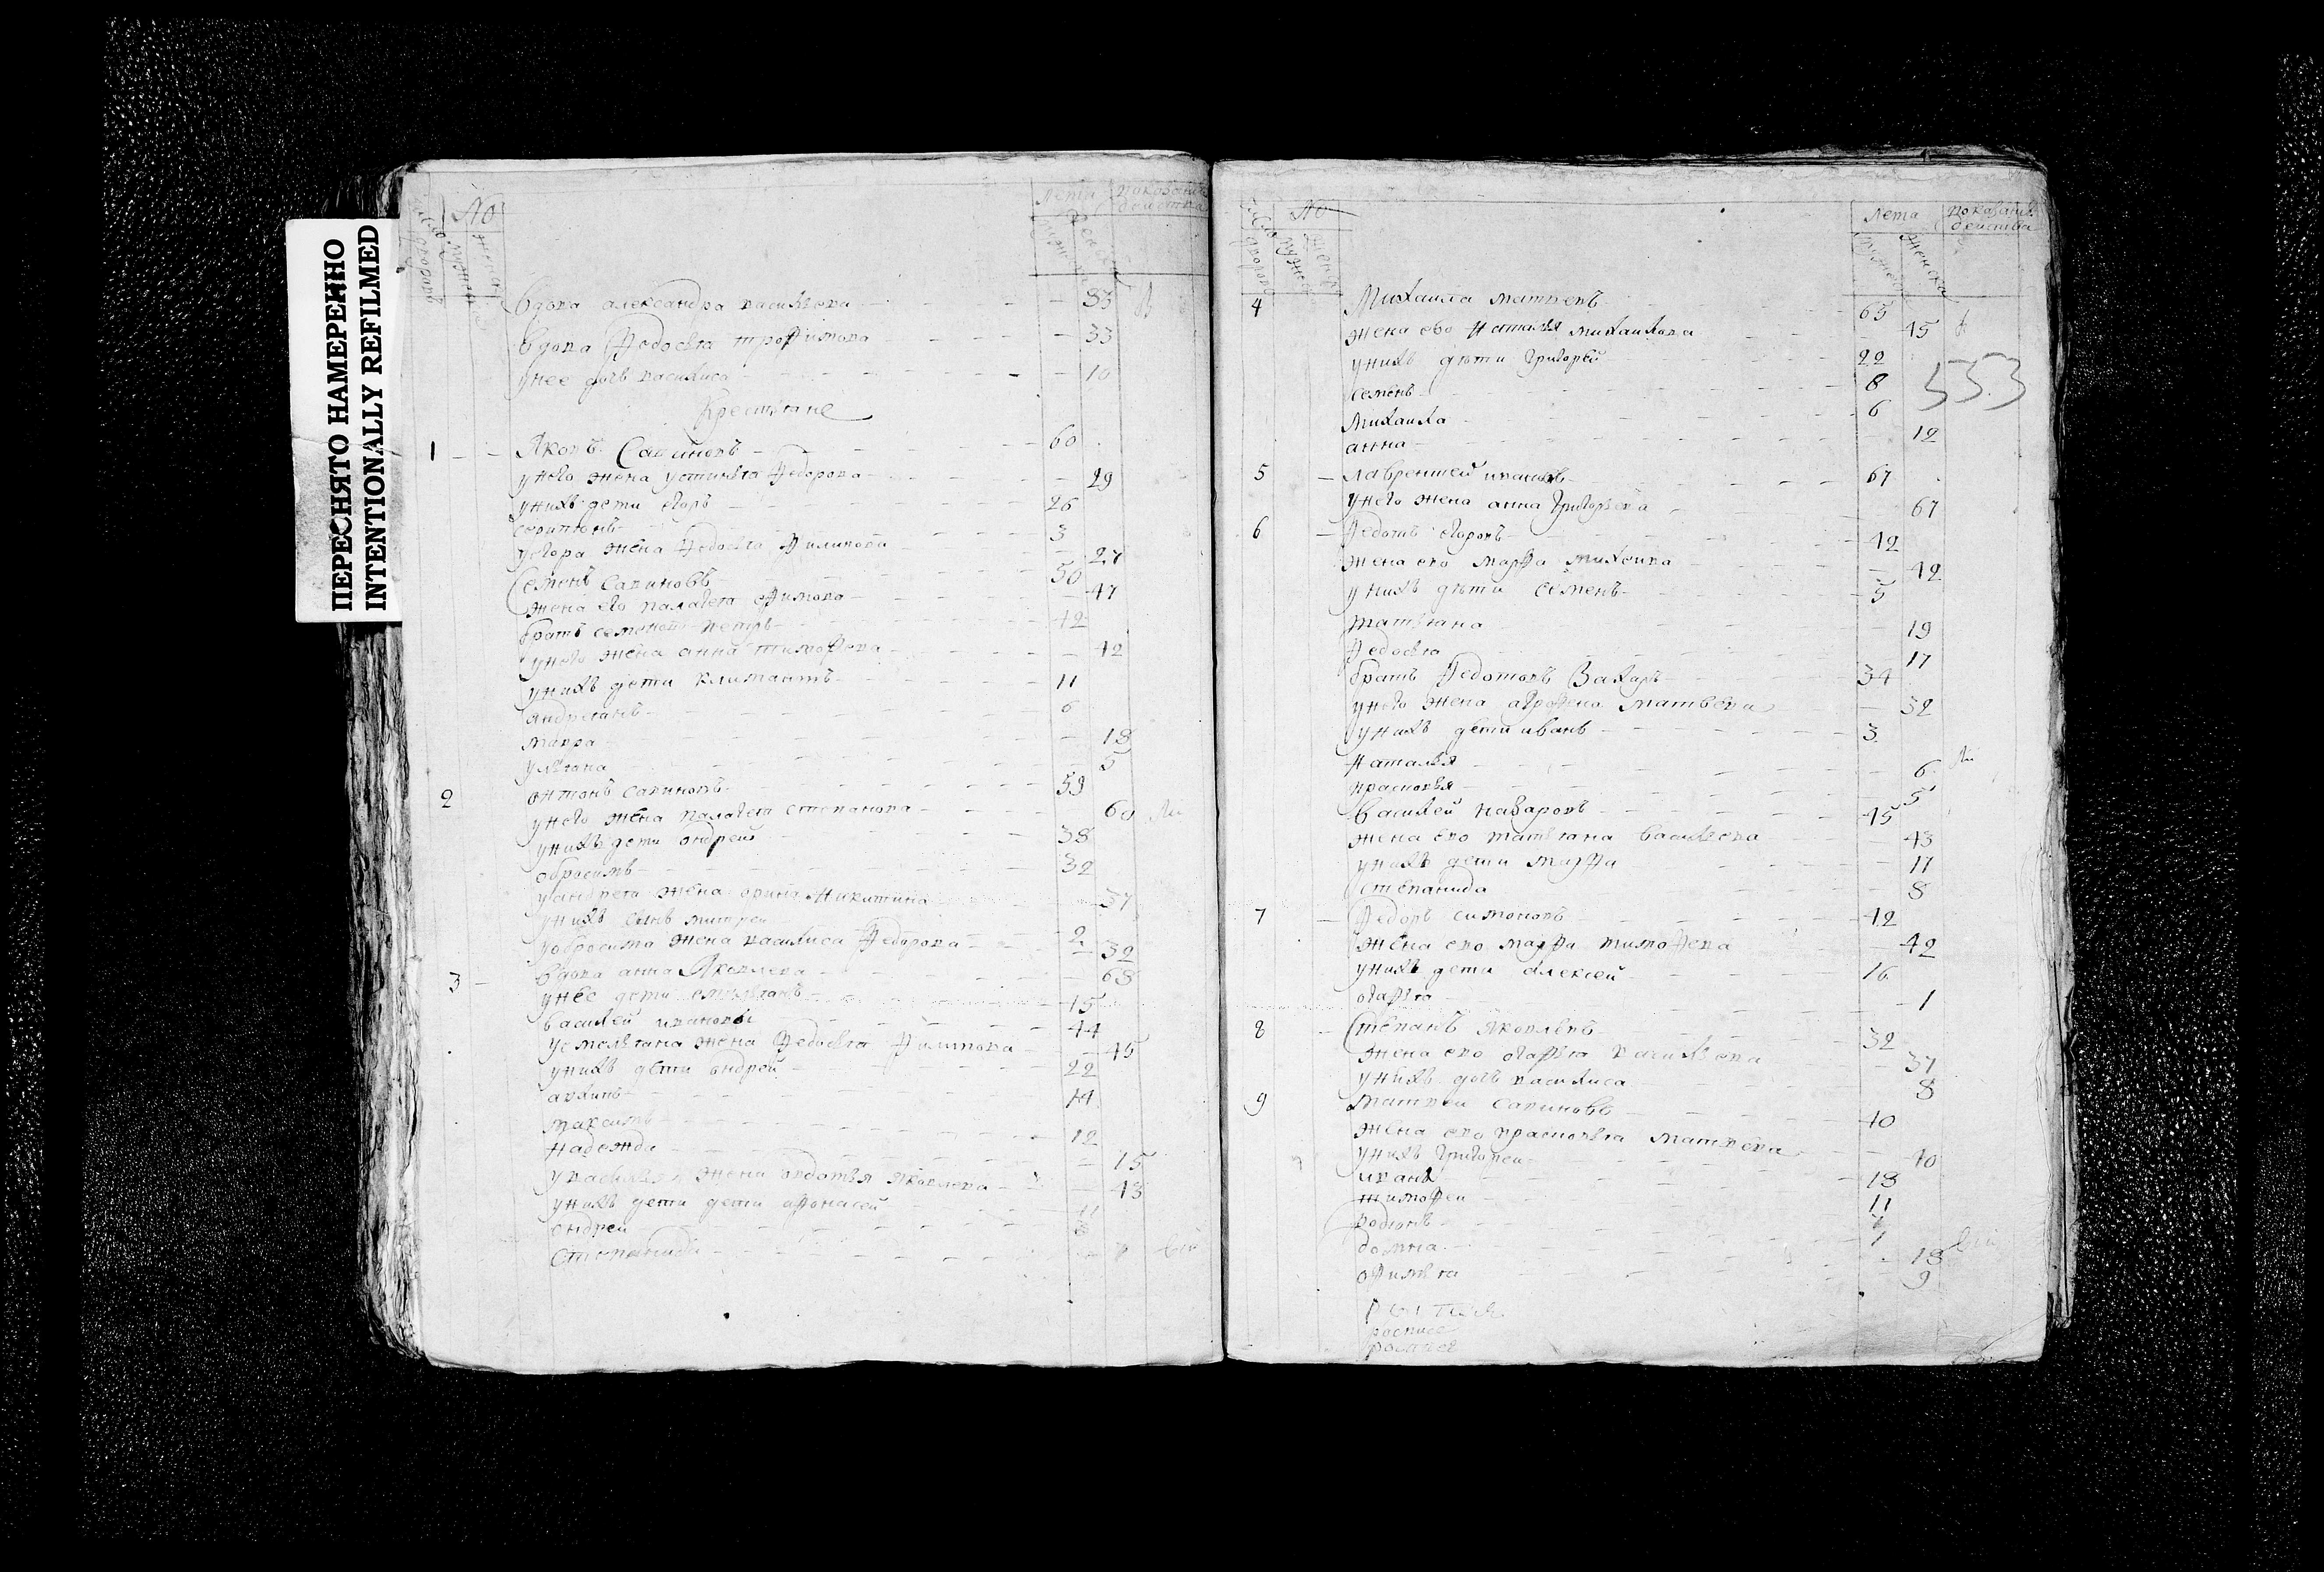 ПЕРЕСНЯТО НАМЕРЕННО
INTENTIONALLY REFILMED
№ Лета показание действа
вдова александра василѣева 33
вдова Федосѣя трофимова 33
унее дочь василиса 10
Крестьяне
1 Яковъ Савиновъ 60
унего жена устинѣя Федорова 29
унихъ дети егоръ 26
3
уегора жена Федосѣя Филипова 27
Семенъ Савиновъ 50
жена его палагея ефимова 47
братъ семеновъ петръ 42
унего жена анна тимофеева 42
унихъ дети климантъ 11
андреянъ 6
мавра 18
улѣяна 5
2 онтонъ савиновъ 59
унего жена палагея степанова 60
унихъ дети андрей 38
обросимъ 32
уандрея жена орина никитина 37
унихъ сынъ митрей 2
уобросима жена василиса Федорова 32
3 вдова анна Яковлева 68
унее дети емелѣянъ 45
василей ивановы 44
уемелѣяна жена Федосѣя Филипова 45
унихъ дети андрей 22
архипъ 14
максимъ 12
надежда 15
увасилѣя жена авдотья яковлева 43
унихъ дети дети афонасей 11
андрей
Степанида
№ Лета показание действа
4 Михаила матвеевъ 65
жена ево Наталья михаилова 45
унихъ дѣти григорей 22
553
семенъ 8
михаила 6
анна 12
5 лаврентей ивановъ 67
унего жена анна григорьева 67
6 Федотъ егоровъ 42
жена ево марфа михеива 42
унихъ дѣти семенъ 5
татѣяна 19
Федосѣя 17
братъ Федотовъ Захаръ 34
унего жена аграфена матвеева 32
унихъ дети иванъ 3
Наталья 6
прасковья 5
василей назаровъ 45
жена ево татѣяна василѣева 43
унихъ дети марфа 17
степанида 8
7 Федоръ симоновъ 42
жена ево марфа тимофеева 42
унихъ дети алексей 16
огафѣя 1
8 Степанъ яковлевъ 32
жена ево огафѣя василѣева 37
унихъ дочь василиса 8
9 матвей савиновъ 40
жена ево прасковѣя матвеева 40
унихъ григорей 18
иванъ 11
тимофей
родионъ 1
домна 18
офимѣя 9